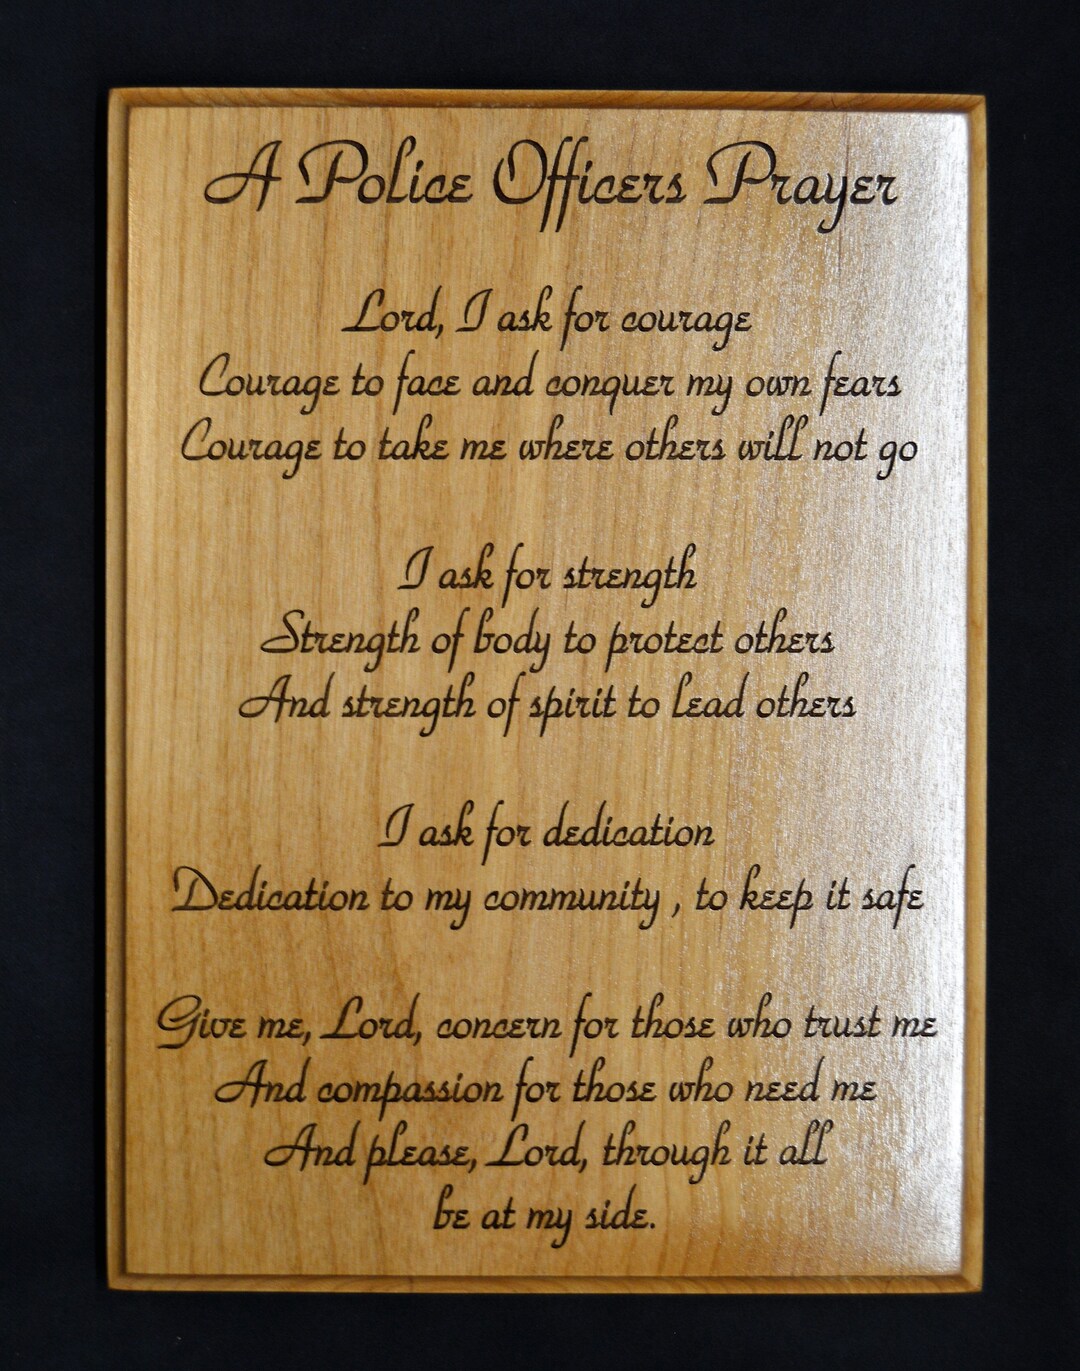 A Police Officers Prayer
Lord, I ask for courage
Courage to face and conquer my own fears
Courage to take me where others will not go
I ask for strength
Strength of body to protect others
And strength of spirit to lead others
I ask for dedication
Dedication to my community , to keep it safe
Give me, Lord, concern for those who trust me
And compassion for those who need me
And please, Lord, through it all
be at my side.